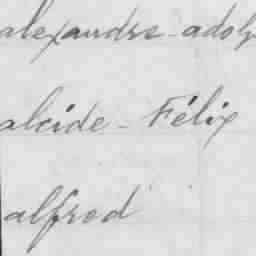 alexandre-adolp
alcide-Félix
alfred